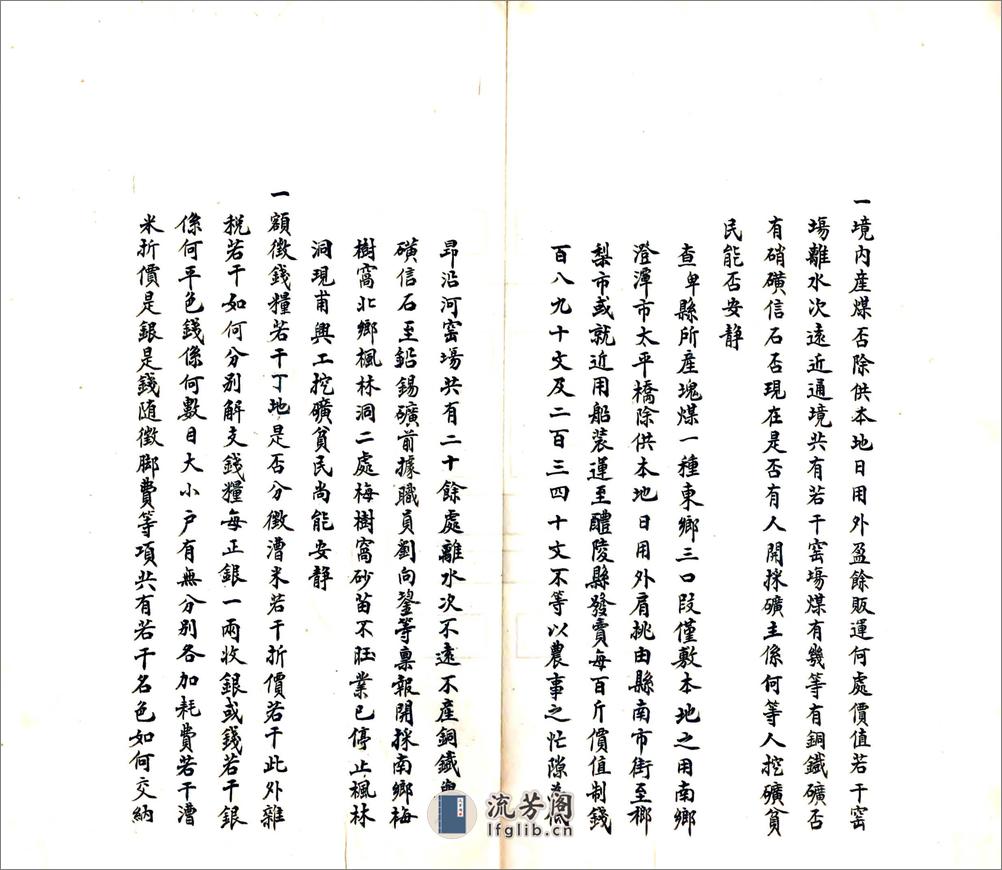 一境内産煤否除供本地日用外盈餘販運何處價值若干窑
塲離水次遠近通境共有若干窑塲煤有幾等有銅鐵礦否
有硝磺信石否現在是否有人開採礦主係何等人挖礦貧
民能否安静
查卑縣所産塊煤一種東鄉三口段僅敷本地之用南鄉
澄潭市太平橋除供本地日用外肩挑由縣南市街至鄉
梨市或就近用船装運至醴陵縣發賣每百斤價值制錢
百八九十文及二百三四十文不等以農事之忙隙為低
昂沿河窑塲共有二十餘處離水次不遠不産銅鐵
磺信石至鉛錫礦前據職員劉向鋆等禀報開採南鄉梅
樹窩北鄉楓林洞二處梅樹窩砂苗不旺業已停止楓林
洞現甫興工挖礦貧民尚能安静
一額徵錢糧若干丁地是否分徵漕米若干折價若干此外雜
税若干如何分别解支錢糧每正銀一兩收銀或錢若干銀
係何平色錢係何數目大小户有無分别各加耗費若干漕
米折價是銀是錢随徵脚費等項共有若干名色如何交納
流芳阁
lfglib.cn